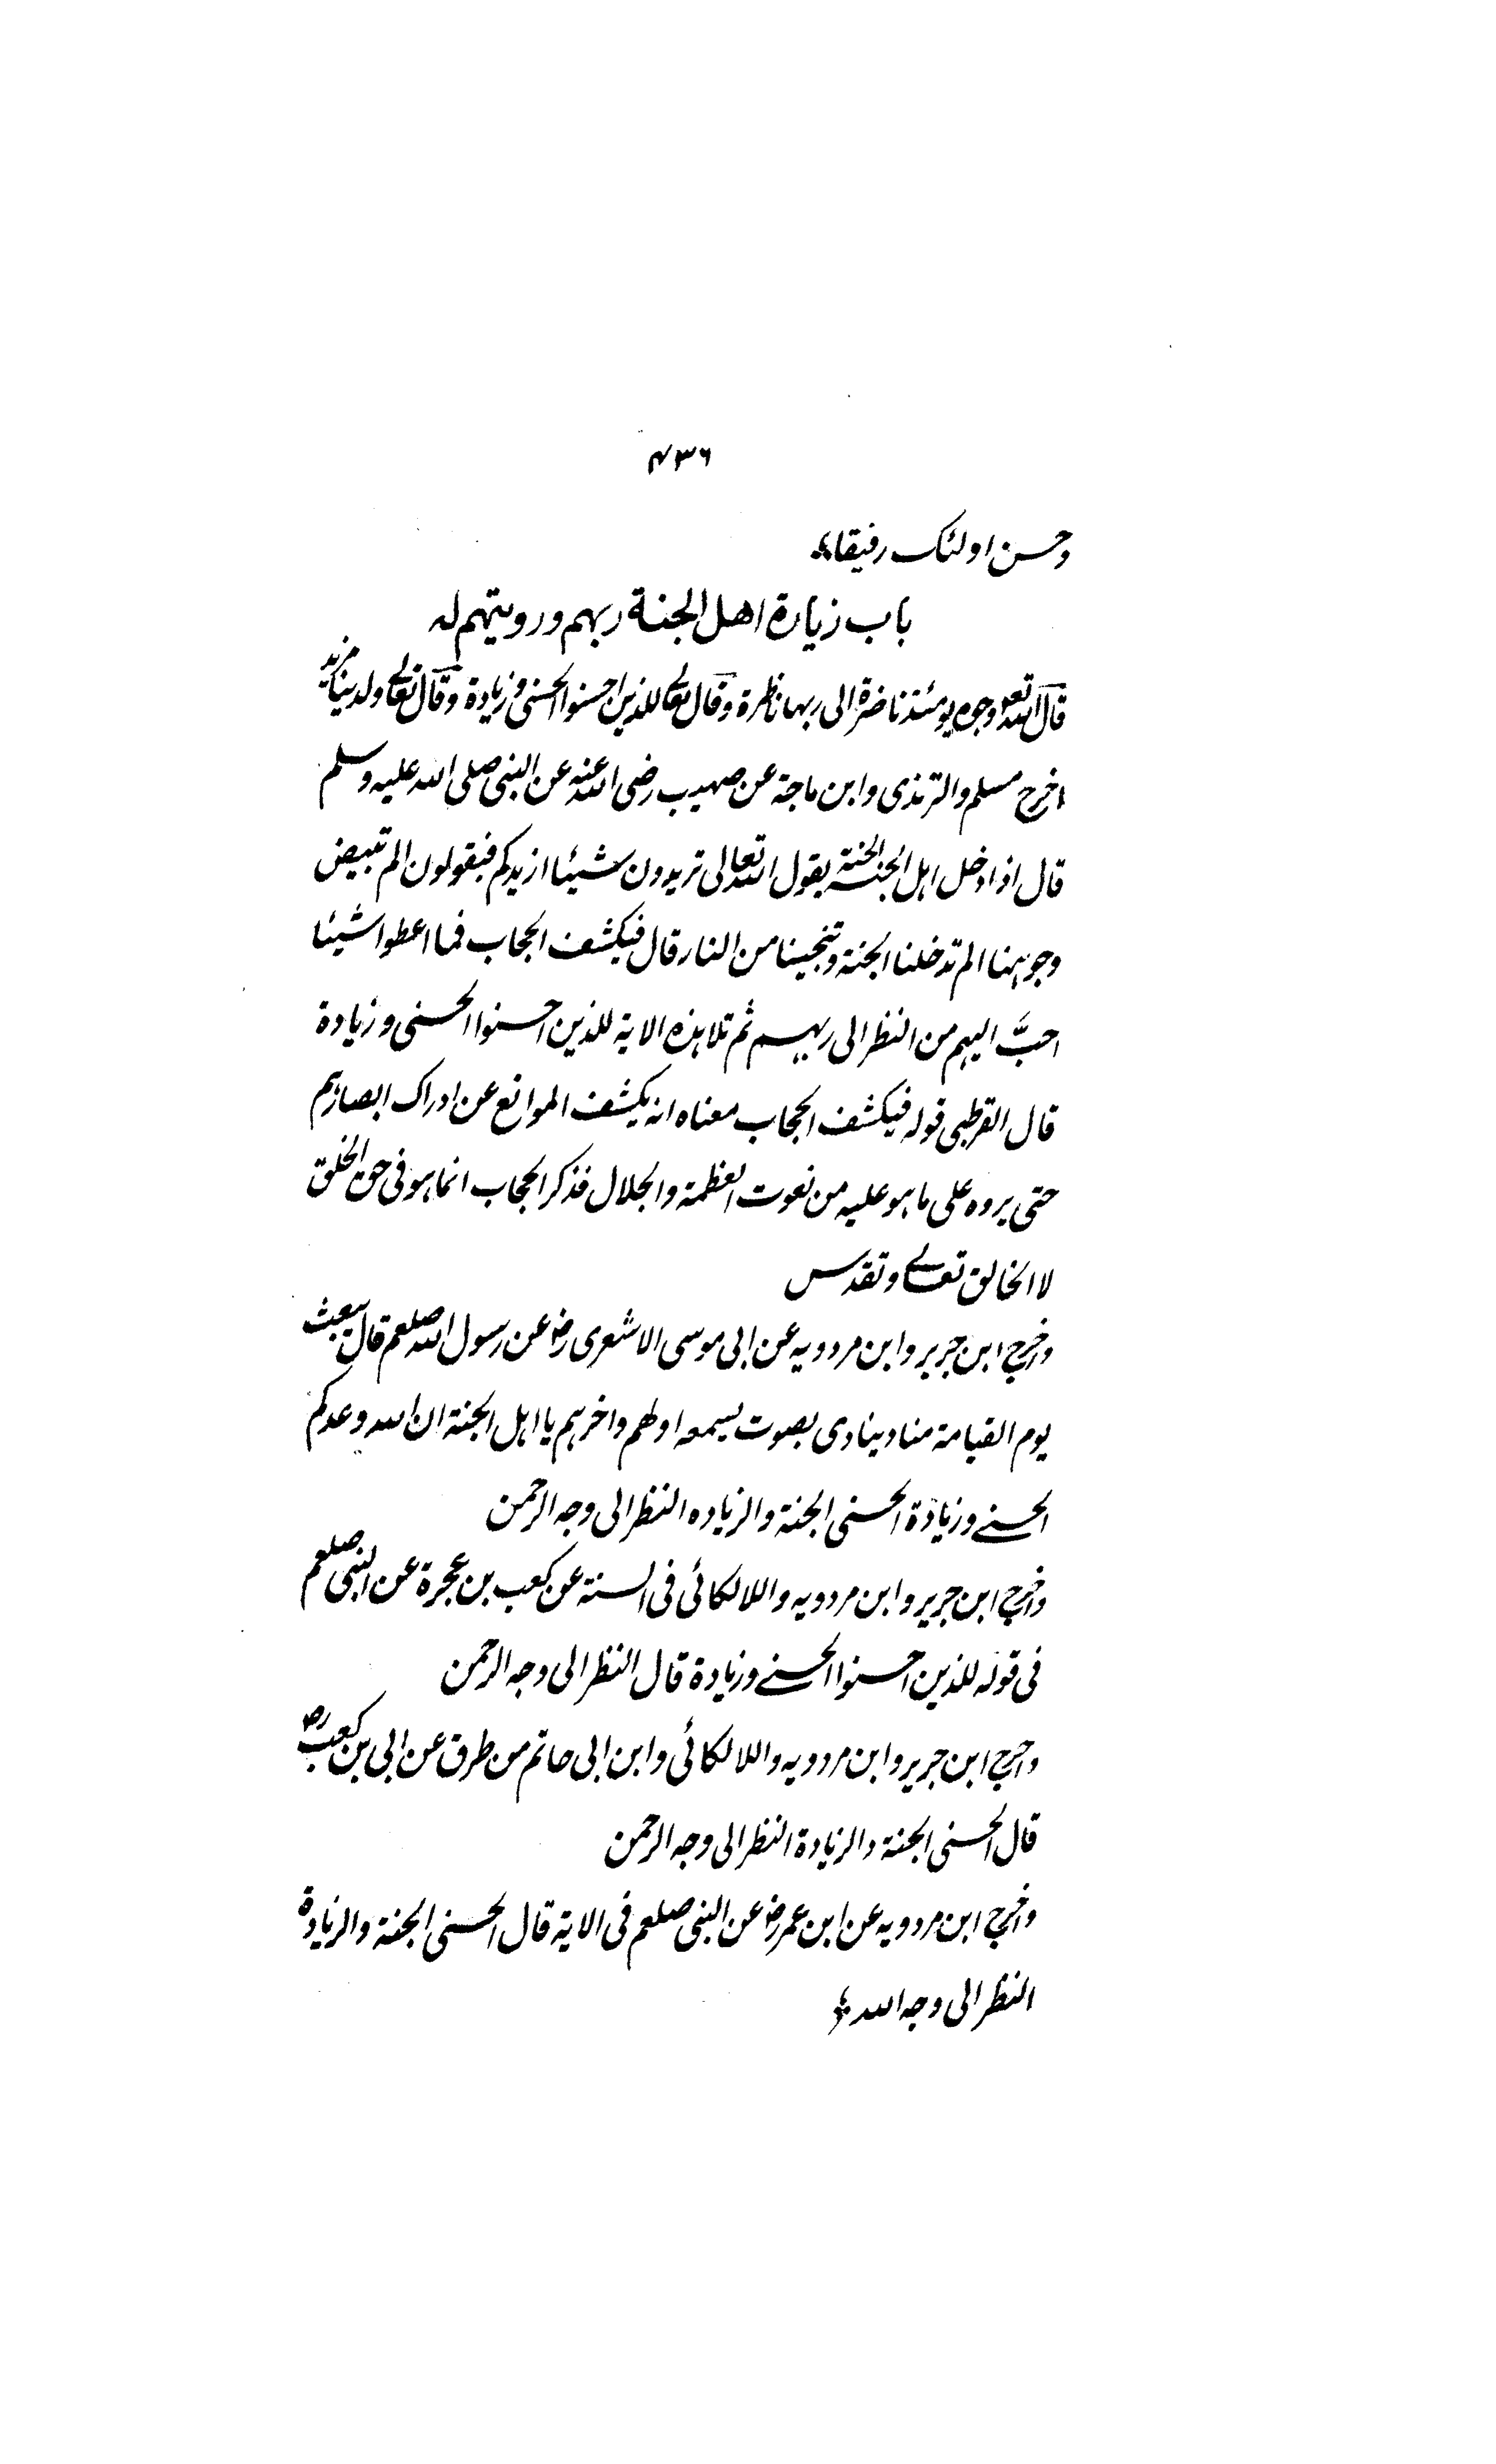 ۴۳۶
وحسن اولئک رفیقا
باب زیارة اهل الجنة ربهم ورویتهم له
قال الله تعہ وجوہ یومئذ ناضرة الی ربها ناظرة وقال تعالے للذین احسنوا الحسنی و زیادة وقال تعالے ولدینا مزید
اخرج مسلم والترمذی وابن ماجة عن صهیب رضی الله عنہ عن النبی صلی الله علیہ وسلم
قال اذا دخل اہل الجنة الجنة یقول الله تعالی تریدون شیئا ازیدکم فیقولون الم تبیض
وجوہنا الم تدخلنا الجنة وتنجینا من النار قال فیکشف الحجاب فما اعطوا شیئا
احبَّ الیہم من النظر الی ربہم ثم تلا ہذہ الایة للذین احسنوا الحسنی و زیادة
قال القرطبی قولہ فیکشف الحجاب معناہ انہ یکشف الموانع عن ادراک ابصارہم
حتی یروہ علی ما ہو علیہ من نعوت العظمة والجلال فذکر الحجاب انما ہو فی حق الخلق
لا الخالق تعالے وتقدس
واخرج ابن جریر وابن مردویہ عن ابی موسی الاشعری رض عن رسول الله صلعم قال یبعث
یوم القیامة منادینادی بصوت یسمعہ اولهم واخرہم یا اہل الجنة ان الله وعدکم
الحسنے وزیادة الحسنی الجنة والزیادہ النظر الی وجہ الرحمن
واخرج ابن جریر وابن مردویہ واللالکائی فی السنة عن کعب بن عجرة عن النبی صلعم
فی قولہ للذین احسنوا الحسنے وزیادة قال النظر الی وجہ الرحمن
واخرج ابن جریر وابن مردویہ واللالکائی وابن ابی حاتم من طرق عن ابی بن کعب رض
قال الحسنی الجنة والزیادة النظر الی وجہ الرحمن
واخرج ابن مردویہ عن ابن عمر رض عن النبی صلعم فی الایة قال الحسنی الجنة والزیادة
النظر الی وجہ الله